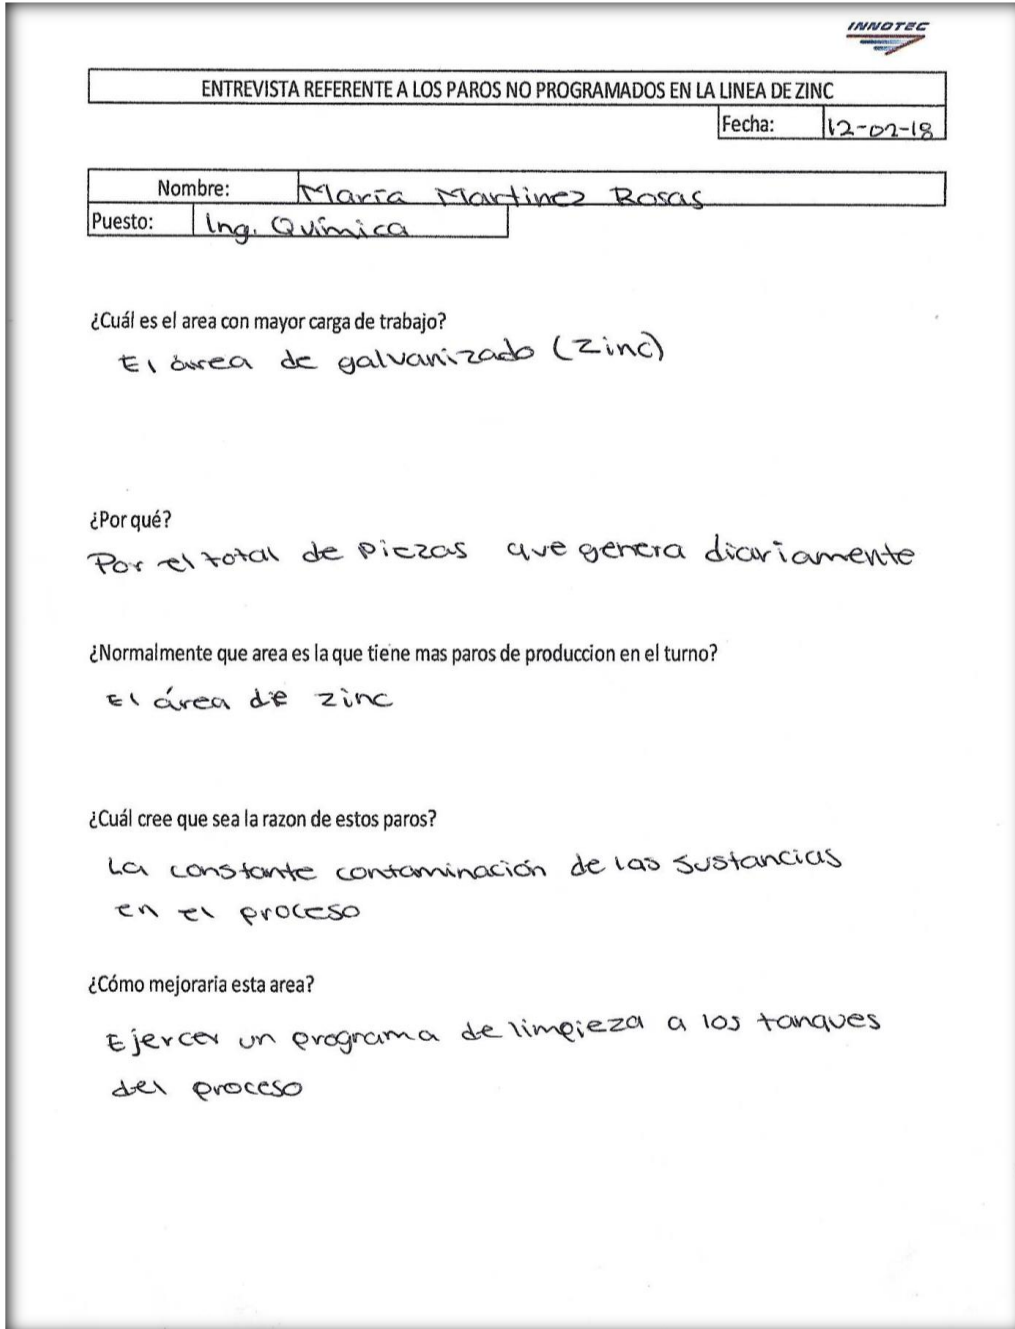 INNOTEC
ENTREVISTA REFERENTE A LOS PAROS NO PROGRAMADOS EN LA LINEA DE ZINC
Fecha: 12-02-18
Nombre: María Martinez Rosas
Puesto: Ing. Química
¿Cuál es el area con mayor carga de trabajo?
El área de galvanizado (Zinc)
¿Por qué?
Por el total de piezas que genera diariamente
¿Normalmente que area es la que tiene mas paros de produccion en el turno?
El área de zinc
¿Cuál cree que sea la razon de estos paros?
La constante contaminación de las sustancias
en el proceso
¿Cómo mejoraria esta area?
Ejercer un programa de limpieza a los tanques
del proceso